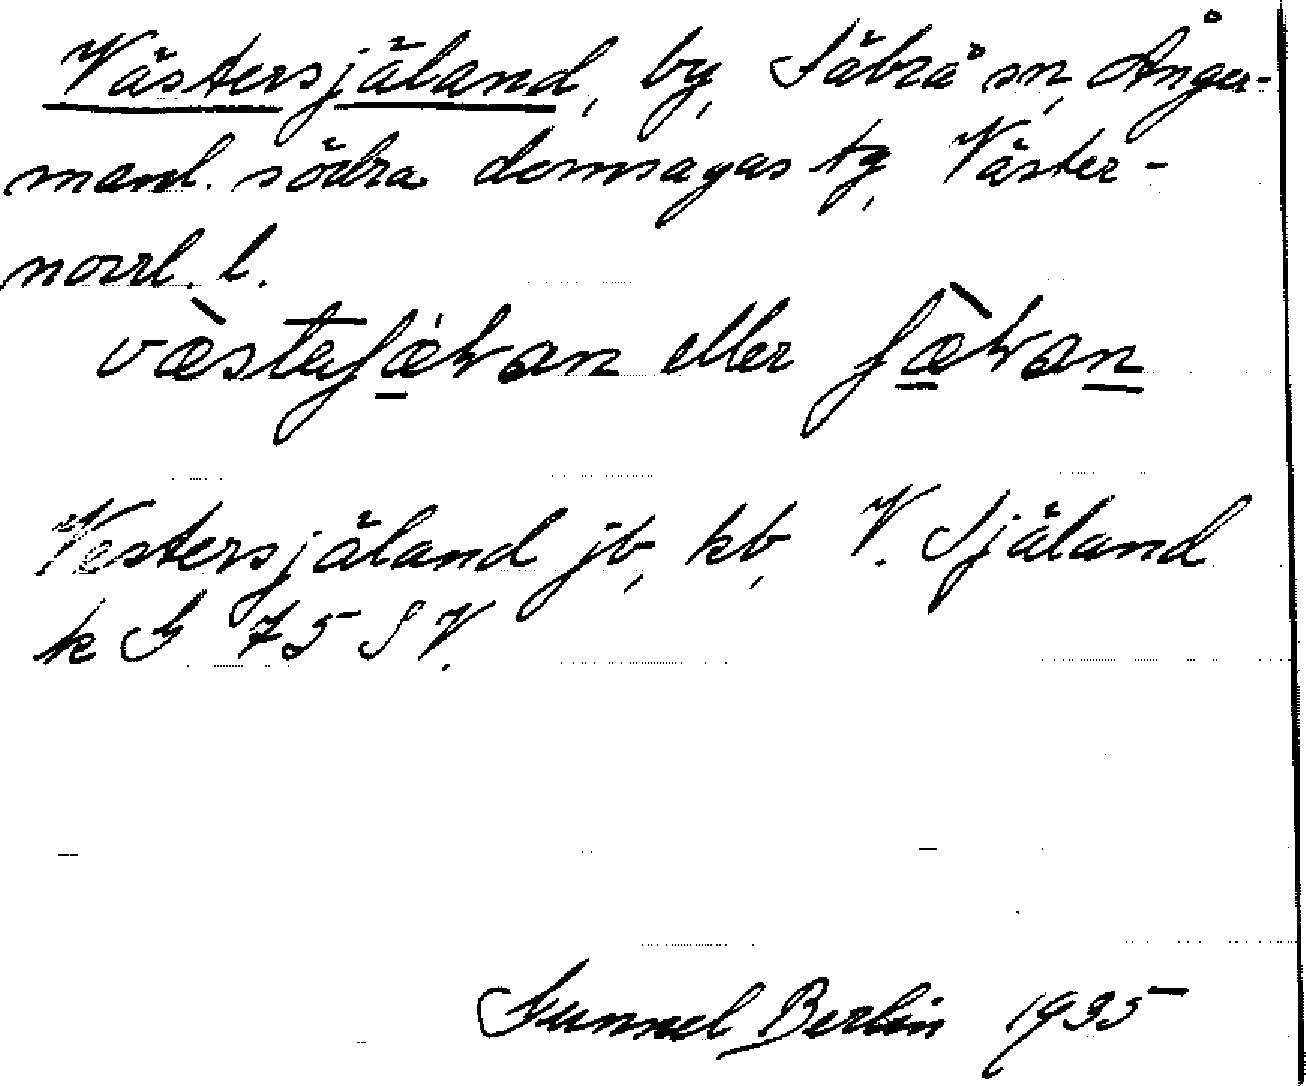 Västersjäland, by, Säbrå sn, Ånger-
manl. södra domsagas tg, Väster-
norrl. l.
eller
Vestersjäland jb, kb, V. Själand
k G 75 S V.
Gunnel Berlin 1935